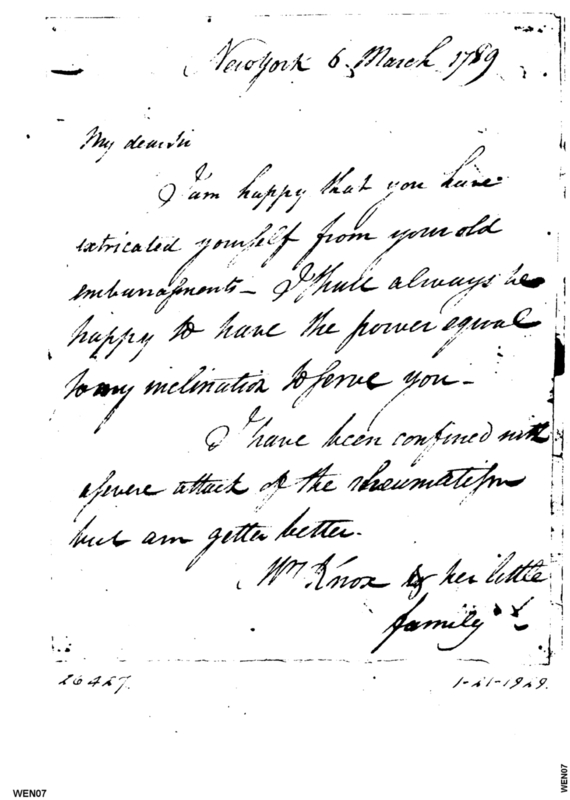 New York 6 March 1789
My dear sir
I am happy that you have
extricated yourself from your old
embarrassments – I shall always be
happy to have the power equal
to my inclination to serve you –
I have been confined with
a severe attack of the rheumatism
but am getter better.
Mrs Knox & her little
family
26427.
1-21-1929.
WEN07
WEN07